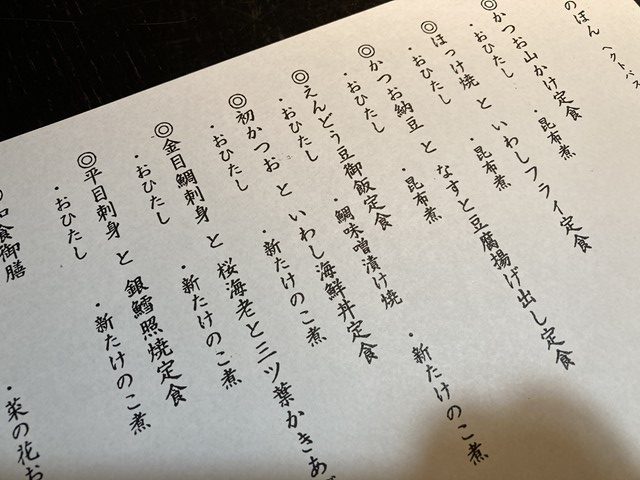 のぼん ヘクトパス
◎かつお山かけ定食
・おひたし ・昆布煮
◎ほっけ焼 と いわしフライ定食
・おひたし ・昆布煮
◎かつお納豆 と なすと豆腐揚げ出し定食
・おひたし ・昆布煮
◎えんどう豆御飯定食
・おひたし ・鯛味噌漬け焼 ・新たけのこ煮
◎初かつお と いわし海鮮丼定食
・おひたし ・新たけのこ煮
◎金目鯛刺身 と 桜海老と三ツ葉かきあ
・おひたし ・新たけのこ煮
◎平目刺身 と 銀鱈照焼定食
・おひたし ・新たけのこ煮
◎和食御膳
・菜の花お